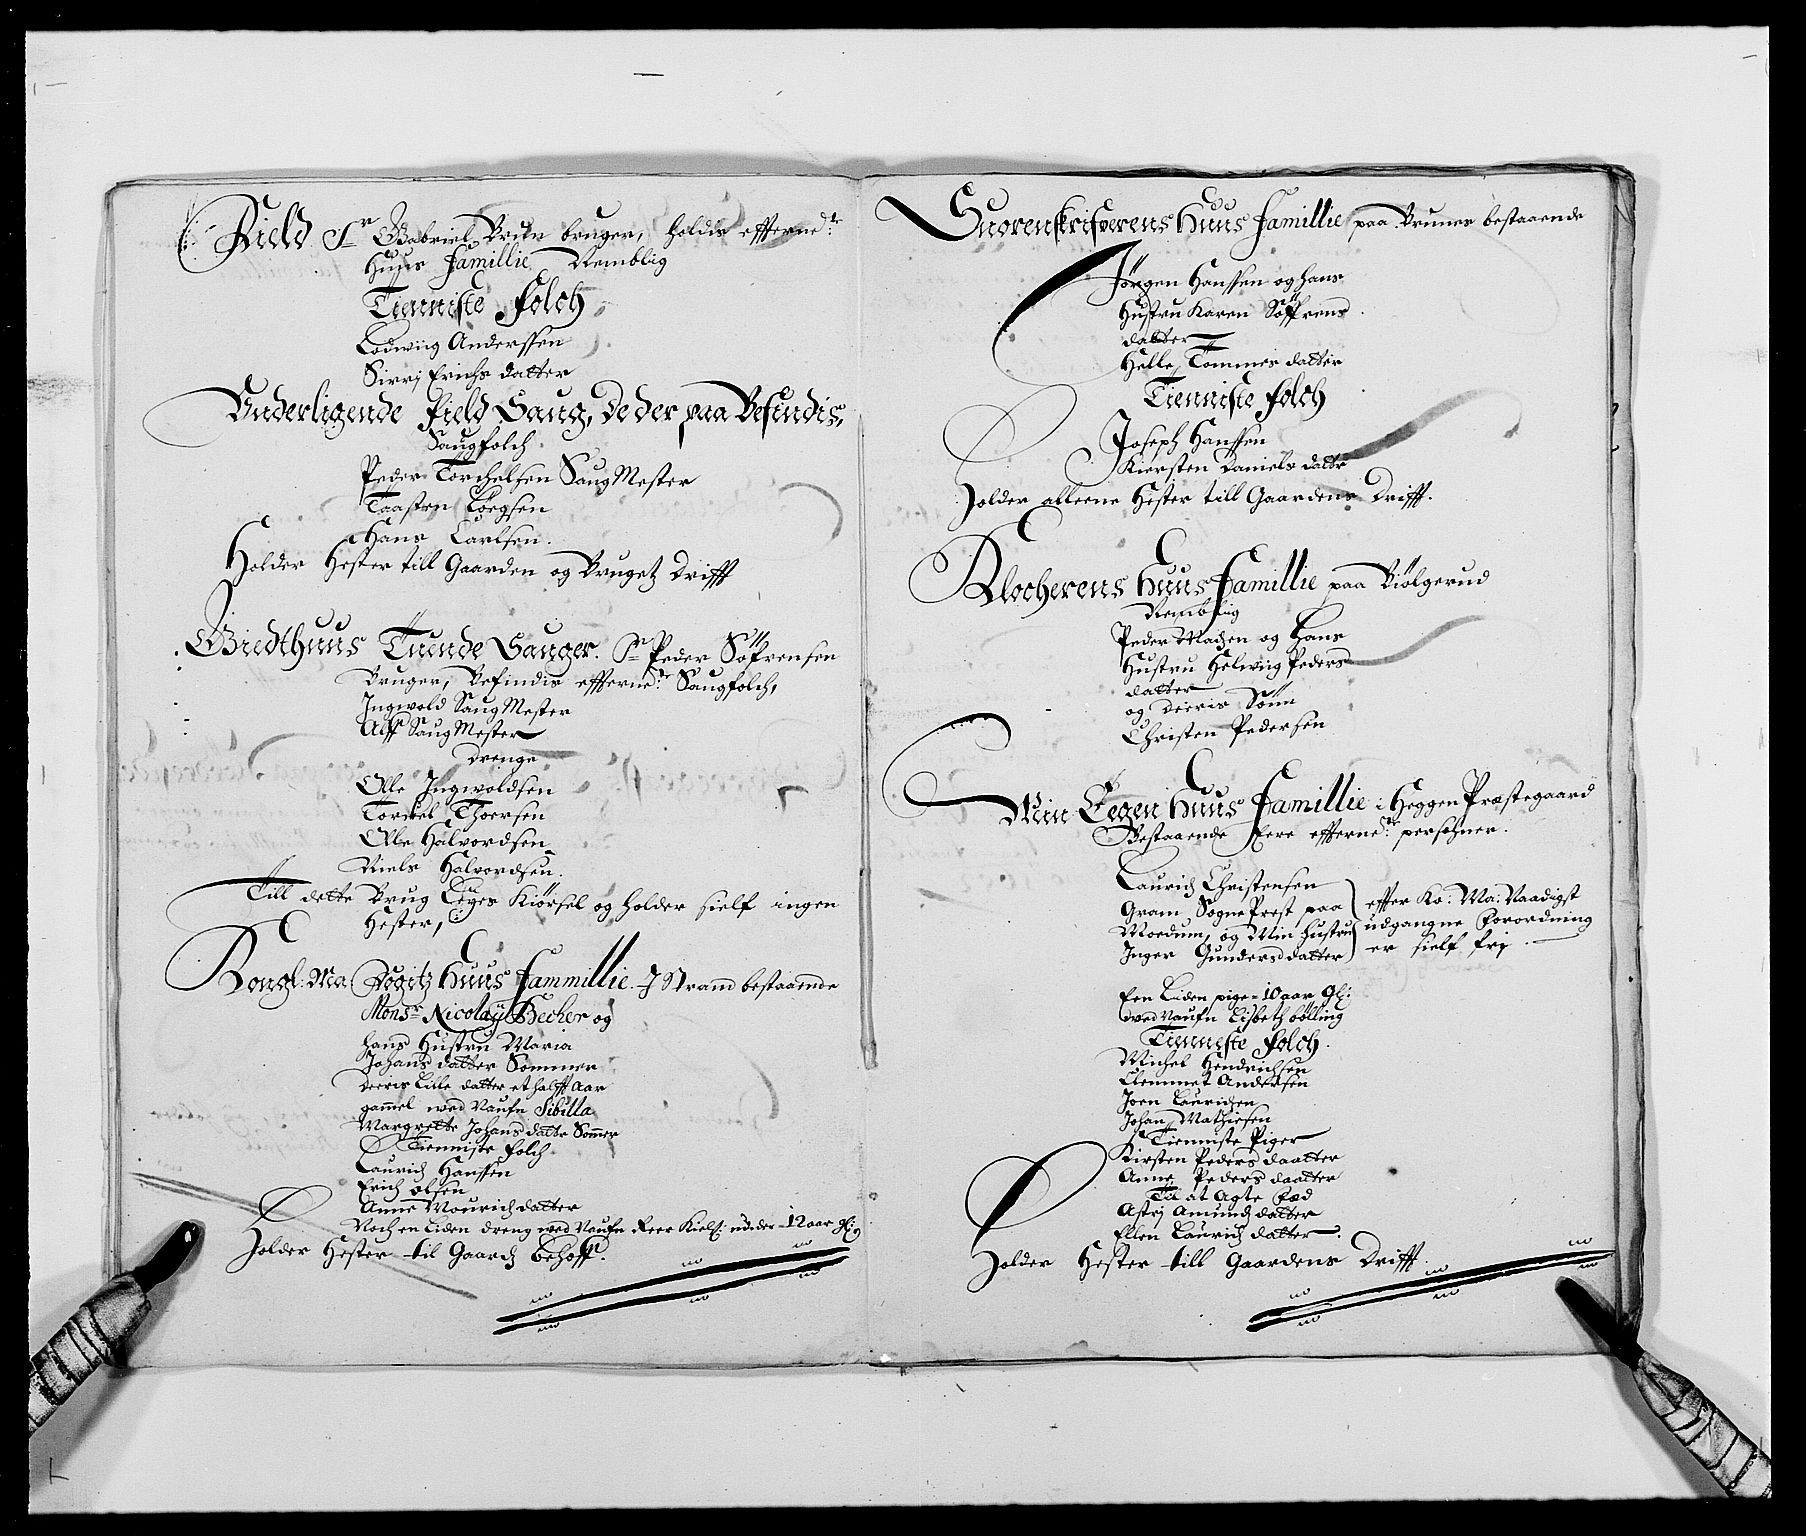 Field Sr Gabriel Brun bruger, holdis effterne:te
Huus Famillie Nemblig
Tienniste Folch
Lodwiig Anderssen
Sirrj Erichs datter
Underligende Field Saug, De der paa Befindis,
Saugfolch
Peder Torchelsen Saug Mester
Taasten
Hans Carlsen.
Holder Hester till Gaarden og Brugetz Drifft
Wiedthuus Tuende Sauger. Sr Peder Söfrensen
Bruger, Befindis effterne:te Saugfolch,
Ingwold Saug Mester
Alff Saug Mester
Drenge
Olle Ingwoldsen
Torckel Thoersen
Olle Halvordsen
Niels Halvordsen.
Till dette Brug Leyes Kiörsel og holder sielf ingen
Hester,
Kongl: Ma: Fogitz Huus Fammillie I Strand bestaaende
Monsr Nicolaÿ Becher og
hans Hustru Maria
Johans datter Sommer
deeris Lille datter et halfft Aar
gammel wed Naufn Sibilla
Margrette Johans datter Sommer
Tienniste Folch
Laurich Hanssen
Erich olsen
Anne Mourich datter
Noch en Liden dreng wed Naufn Peer Kields: under 12 aar gl:
Holder Hester til Gaardz behoff.
Suorenskrifverens Huus Famillie paa Brunes bestaaende
Jörgen Hanssen og hans
Hustru Karen Söffrens
datter
Helle Tommes datter
Tienniste Folch
Joseph Hanssen
Kiersten Daniels datter
Holder alleene Hester till Gaardens Drifft.
Klocherens Huus Famillie paa Biölgerud
Nemblig
Peder Madzen og Hans
Hustru Helwiig Peders
datter
og deeris Sönn
Christen Pedersen
Min Eegen Huus Famillie i Heggen Præstegaard
Bestaaende Eere effterne:te persohner.
Laurich Christensen
Gram Sogne Prest paa
Moedum, og Min Hustru
Inger Gunders datter
effter Ko: Ma: Naadigst
udgangne Forordning
er sielf frj
Een Liden pige 10 aar gl:
wed Naufn Lisbeth bölling
Tienniste Folch.
Michel Hendrichsen
Clemmet Andersen
Joen Laurichen
Johan Mathiesen
Tienniste Piger
Kirsten Peders daatter
Anne Peders daatter
Til at Agte
Astrj Amundz datter
Ellen Laurich datter.
Holder Hester till Gaardens Drifft